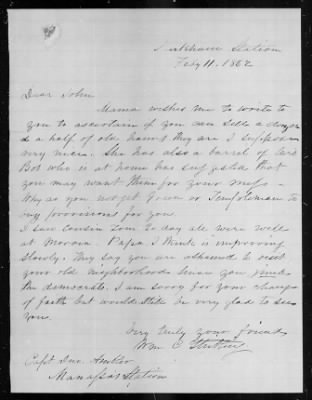 Markham Station
Feby 11. 1862
Dear John
Mama wishes me to write to
you to ascertain if you can sell a dozen
& a half of old hams they are I suppose
very nice. She has also a barrel of lard
Bob who is at home has suggested that
you may want them for your mess -
Why do you not get Green or Templeman to
buy provisions for you
I saw cousin Tom to day all were well
at Morven. Papa I think is improving
slowly. They say you are ashamed to visit
your old neighborhood since you joined
the democrats. I am sorry for your change
of faith but would still be very glad to see
you.
Very truly your friend
Wm C
Capt Jno. Ambler
Manassas Station